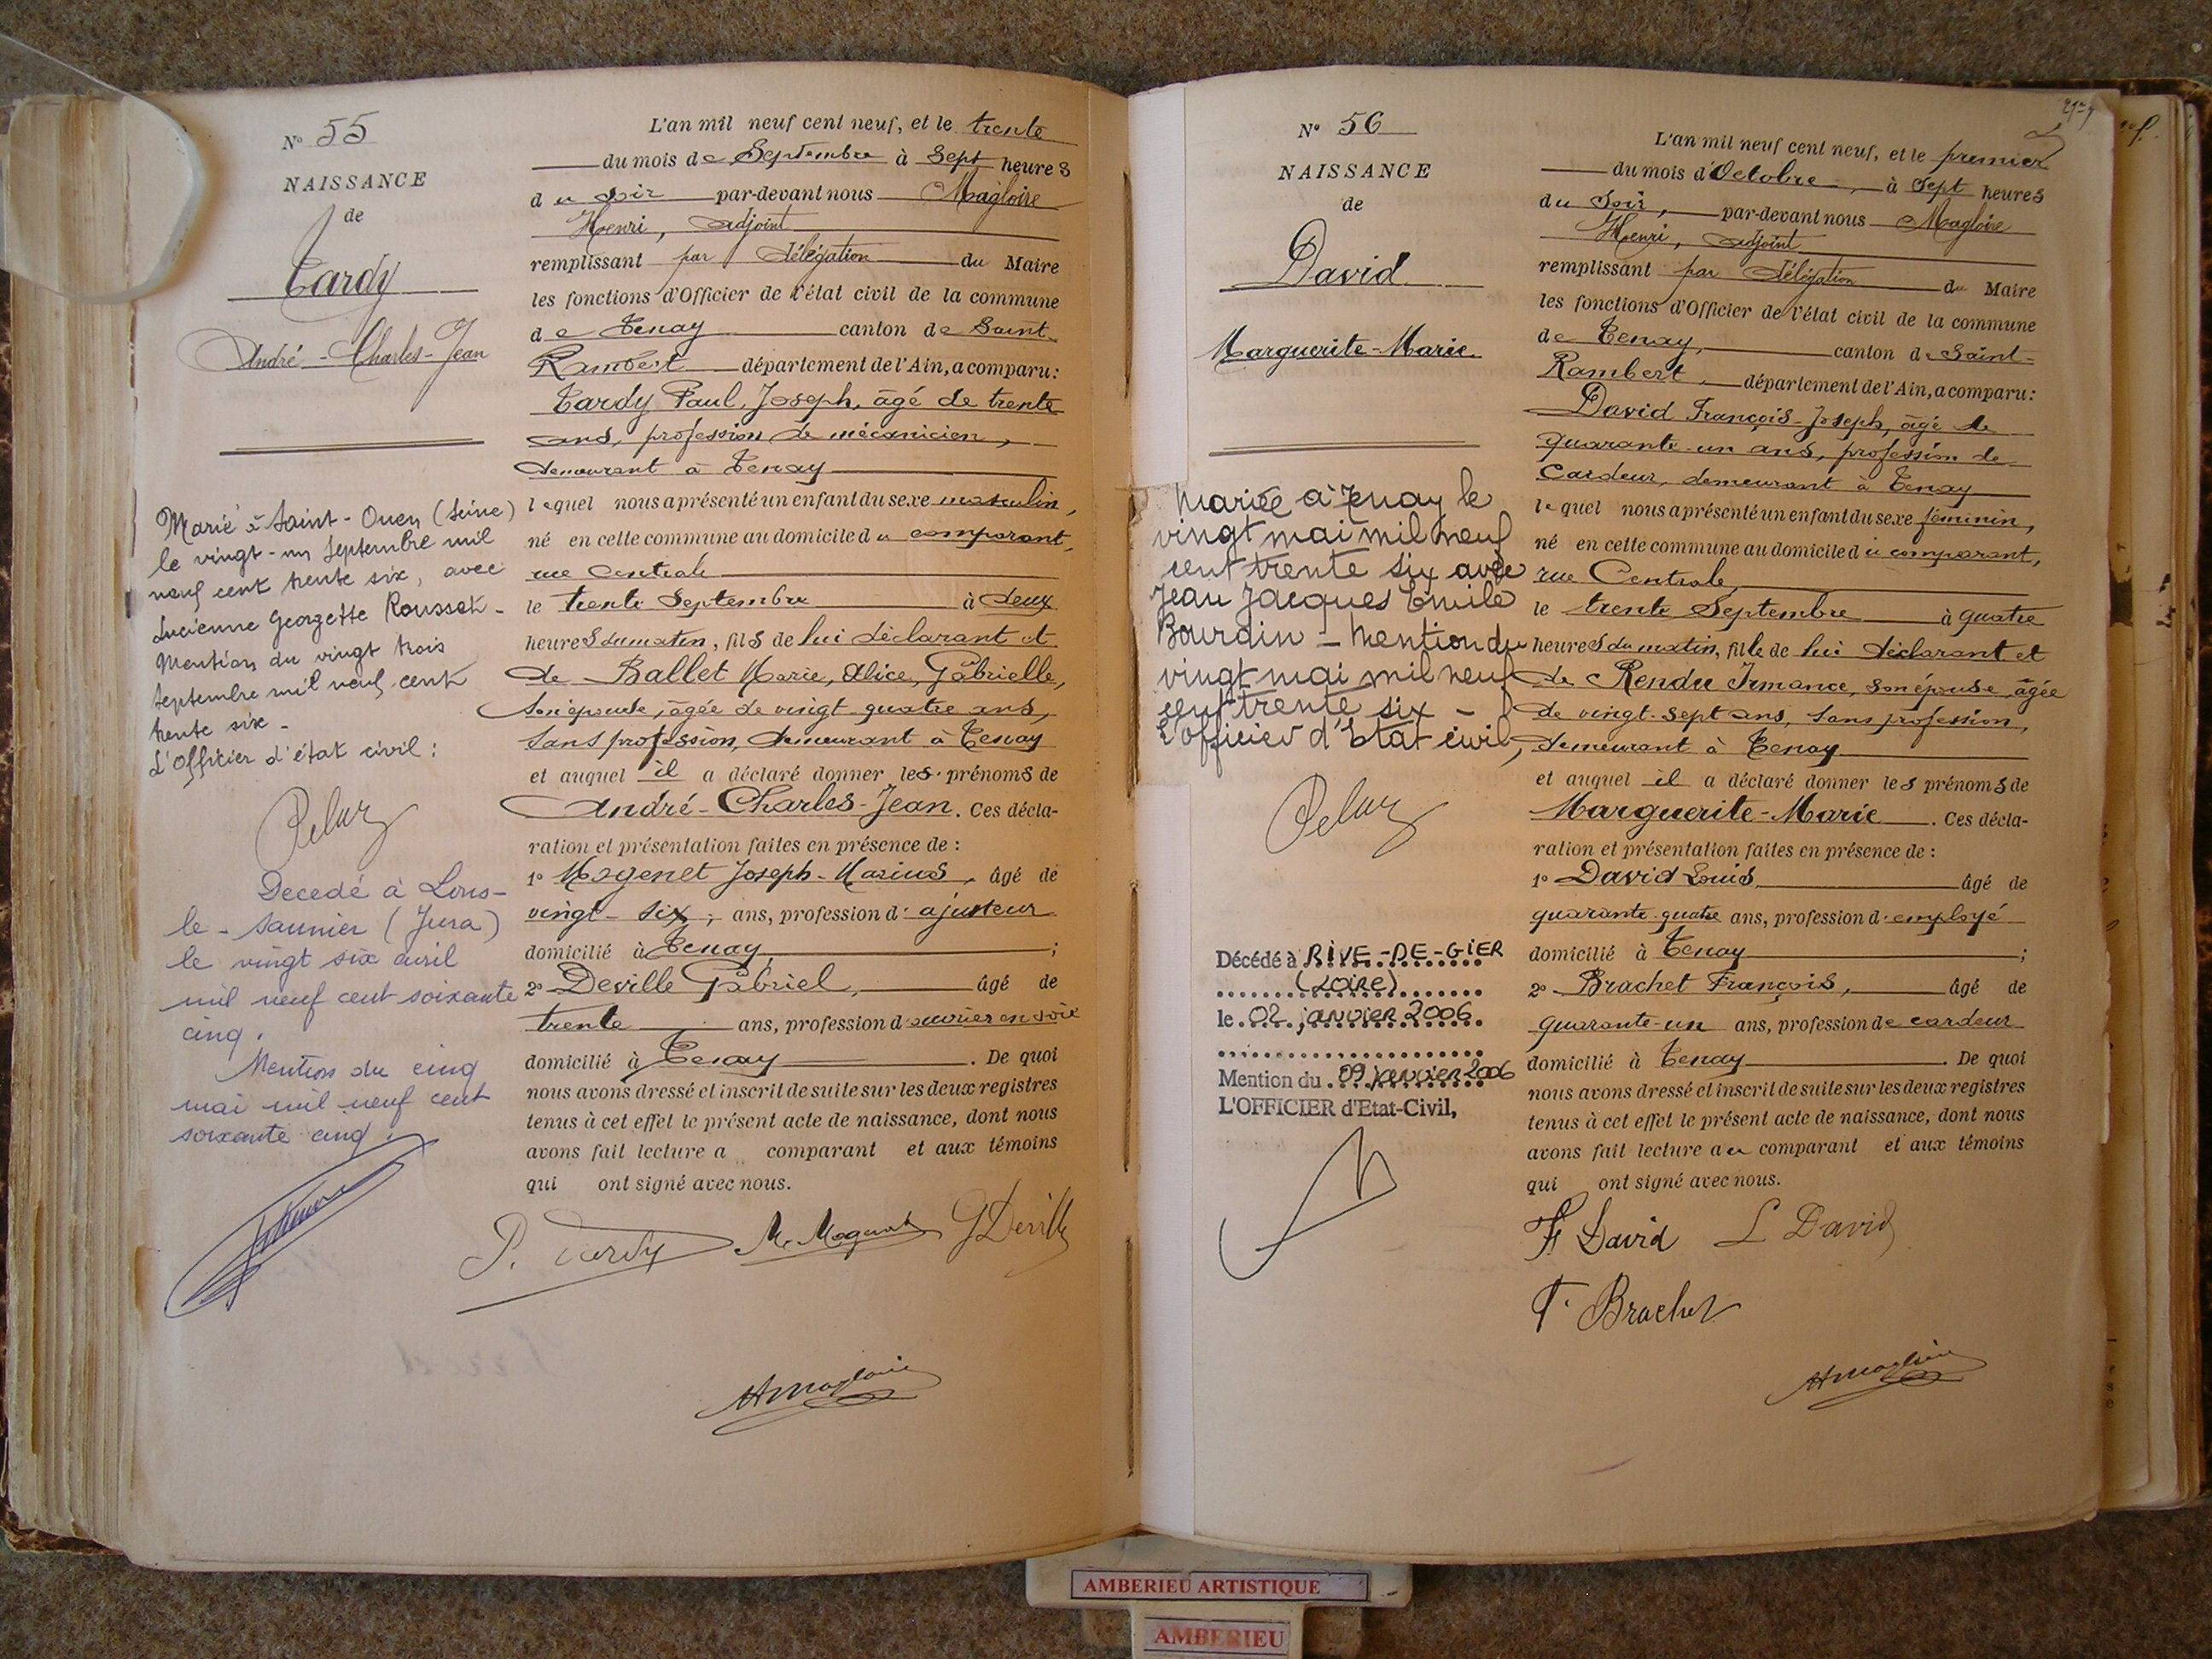 N° 55
NAISSANCE
de
Tardy
André-Charles-Jean
Marié à Saint-Ouen (Seine)
le vingt-un septembre mil
neuf cent trente six, avec
Lucienne Georgette Rousset -
Mention du vingt trois
septembre mil neuf cent
trente six -
L'Officier d'état civil :
Decedé à Lons-
le-Saunier (Jura)
le vingt six avril
mil neuf cent soixante
cinq.
Mention du cinq
mai mil neuf cent
soixante cinq.
L'an mil neuf cent neuf, et le trente
du mois de Septembre à Sept heures
du soir par-devant nous Magloire
Henri, adjoint
remplissant par délégation du Maire
les fonctions d'Officier de l'état civil de la commune
de Tenay canton de Saint-
Rambert département de l'Ain, a comparu :
Tardy Paul, Joseph, âgé de trente
ans, profession de mécanicien,
demeurant à Tenay
lequel nous a présenté un enfant du sexe masculin,
né en cette commune au domicile du comparant,
rue Centrale
le trente Septembre à deux
heures du matin, fils de lui déclarant et
de Ballet Marie, Alice, Gabrielle,
son épouse, âgée de vingt-quatre ans,
sans profession, demeurant à Tenay
et auquel il a déclaré donner les prénoms de
André-Charles-Jean. Ces décla-
ration et présentation faites en présence de :
1° Mogenet Joseph-Marius, âgé de
vingt-six, ans, profession d'ajusteur
domicilié à Tenay ;
2° Deville Gabriel, âgé de
trente ans, profession d'ouvrier en soie
domicilié à Tenay. De quoi
nous avons dressé et inscrit de suite sur les deux registres
tenus à cet effet le présent acte de naissance, dont nous
avons fait lecture a comparant et aux témoins
qui ont signé avec nous.
P. Tardy M. Mogenet G Deville
HMagloire
N° 56
NAISSANCE
de
David
Marguerite-Marie
Mariée à Tenay le
vingt mai mil neuf
cent trente six avec
Jean Jacques Emile
Bourdin - Mention du
vingt mai mil neuf
cent trente six -
L'officier d'Etat civil,
Décédé à RIVE-DE-GIER
(LOIRE)
le 02 janvier 2006
Mention du 09 janvier 2006
L'OFFICIER d'Etat-Civil,
L'an mil neuf cent neuf, et le premier
du mois d'Octobre, à Sept heures
du Soir, par-devant nous Magloire
Henri, adjoint
remplissant par délégation du Maire
les fonctions d'Officier de l'état civil de la commune
de Tenay, canton de Saint-
Rambert, département de l'Ain, a comparu :
David François-Joseph, âgé de
quarante-un ans, profession de
Cardeur, demeurant à Tenay
lequel nous a présenté un enfant du sexe féminin,
né en cette commune au domicile du comparant,
rue Centrale,
le trente Septembre à quatre
heures du matin, fille de lui déclarant et
de Rendu Irmance, son épouse, âgée
de vingt-sept ans, sans profession,
demeurant à Tenay
et auquel il a déclaré donner les prénoms de
Marguerite-Marie. Ces décla-
ration et présentation faites en présence de :
1° David Louis, âgé de
quarante-quatre ans, profession d'employé
domicilié à Tenay ;
2° Brachet François, âgé de
quarante-un ans, profession de cardeur
domicilié à Tenay. De quoi
nous avons dressé et inscrit de suite sur les deux registres
tenus à cet effet le présent acte de naissance, dont nous
avons fait lecture au comparant et aux témoins
qui ont signé avec nous.
F. David L David
F. Brachet
HMagloire
AMBERIEU ARTISTIQUE
AMBERIEU